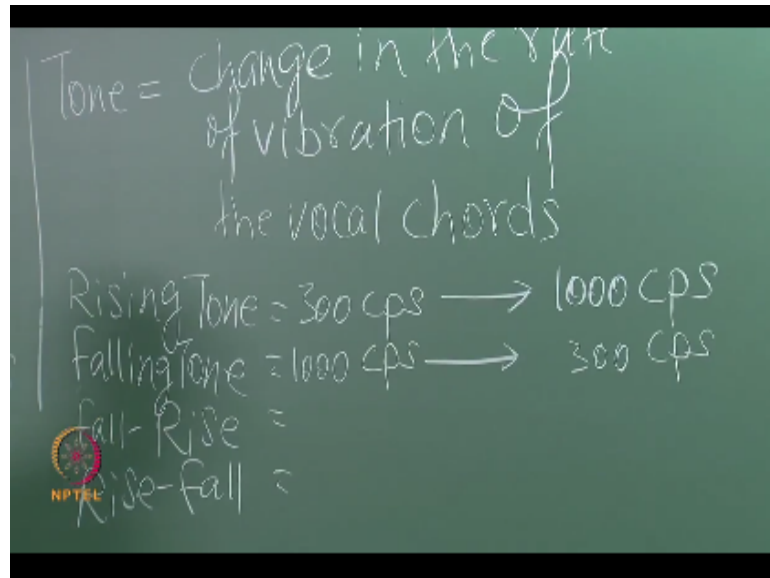 Tone = change in the rate
of vibration of
the vocal chords
Rising Tone = 300 cps → 1000 cps
Falling Tone = 1000 cps → 300 cps
Fall-Rise =
Rise-fall =
NPTEL